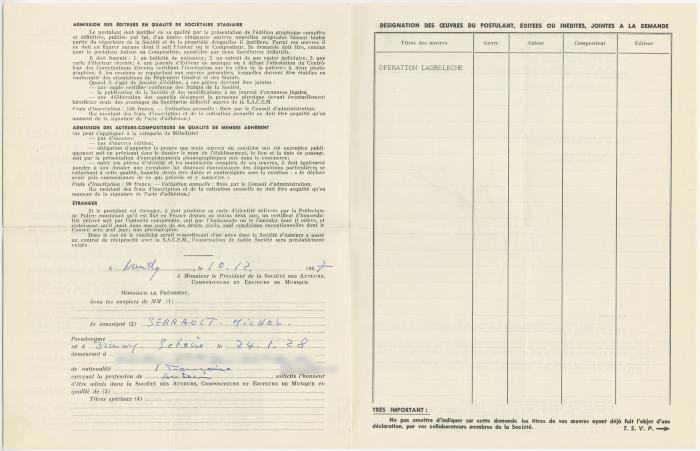 ADMISSION DES ÉDITEURS EN QUALITÉ DE SOCIÉTAIRE STAGIAIRE
Le postulant doit justifier de sa qualité par la présentation de l'édition graphique complète et
définitive, publiée par lui, d'au moins cinquante œuvres nouvelles originales faisant toutes
partie du répertoire de la Société et de la propriété desquelles il justifiera. Parmi ces œuvres il
ne doit en figurer aucune dont il soit l'Auteur ou le Compositeur. Sa demande doit être, comme
pour le postulant Auteur ou Compositeur, apostillée par deux Sociétaires définitifs.
Il doit fournir : 1. un bulletin de naissance; 2. un extrait de son casier judiciaire; 3. une
conformité des stipulations du Règlement Général et des Statuts.
Quand il s'agit de Société d'édition, à ces pièces devront être jointes :
— une copie certifiée conforme des Statuts de la Société,
— la publication de la Société et des modifications à un journal d'annonces légales,
— une délibération des associés désignant la personne physique devant éventuellement
bénéficier seule des avantages du Sociétariat définitif auprès de la S.A.C.E.M.
Frais d'inscription : 150 francs. — Cotisation annuelle : fixée par le Conseil d'administration.
(Le montant des frais d'inscription et de la cotisation annuelle ne doit être acquitté qu'au
moment de la signature de l'acte d'adhésion.)
ADMISSION DES AUTEURS-COMPOSITEURS EN QUALITÉ DE MEMBRE ADHÉRENT
(ne peut s'appliquer à la catégorie de Mélodiste)
— pas d'examen;
— pas d'œuvre éditée;
— obligation d'apporter la preuve que trois œuvres du candidat ont été exécutées publi-
quement soit en précisant dans le dossier le nom de l'établissement, le lieu et la date de passage,
soit par la présentation d'enregistrements phonographiques mis dans le commerce;
— outre ses pièces d'identité et les manuscrits complets de ses œuvres, il doit également
joindre à son dossier une circulaire lui donnant connaissance des dispositions particulières se
rattachant à cette qualité, laquelle devra être datée et contresignée sous la mention : « Je déclare
avoir pris connaissance de ce qui précède et y souscrire. »
Frais d'inscription : 90 francs. — Cotisation annuelle : fixée par le Conseil d'administration.
(Le montant des frais d'inscription et de la cotisation annuelle ne doit être acquitté qu'au
moment de la signature de l'acte d'adhésion.)
ÉTRANGER
Si le postulant est étranger, il doit produire sa carte d'identité délivrée par la Préfecture
de Police constatant qu'il est fixé en France depuis au moins deux ans, un certificat d'honorabi-
lité délivré soit par l'autorité compétente, soit par l'Ambassade ou le Consulat dont il relève, et
établissant qu'il jouit dans son pays de ses droits civils, sauf conditions exceptionnelles dont le
Conseil sera seul juge, une photographie.
Dans le cas où le candidat serait ressortissant d'un pays dont la Société d'Auteurs a passé
un contrat de réciprocité avec la S.A.C.E.M., l'autorisation de ladite Société sera préalablement
exigée.
A Neuilly, le 10.12. 1967
A Monsieur le Président de la SOCIÉTÉ DES AUTEURS,
COMPOSITEURS ET EDITEURS DE MUSIQUE.
MONSIEUR LE PRÉSIDENT,
Sous les auspices de MM (1)
Je soussigné (2) SERRAULT. MICHEL.
Pseudonyme
né à Brunoy. le 24.1.28
demeurant à
de nationalité Française
exerçant la profession de Auteur, sollicite l'honneur
d'être admis dans la SOCIÉTÉ DES AUTEURS, COMPOSITEURS ET EDITEURS DE MUSIQUE en
qualité de (3)
Titres spéciaux (4)
DÉSIGNATION DES ŒUVRES DU POSTULANT, ÉDITÉES OU INÉDITES, JOINTES A LA DEMANDE
Titres des œuvres Genre Auteur Compositeur Editeur
OPERATION LAGRELECHE
TRÈS IMPORTANT :
Ne pas omettre d'indiquer sur cette demande les titres de vos œuvres ayant déjà fait l'objet d'une
déclaration, par vos collaborateurs membres de la Société.
T. S. V. P.